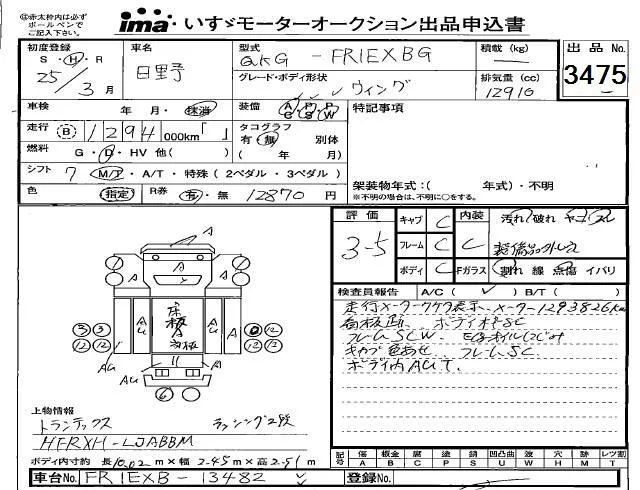 ㊟赤太枠内は必ず
ボールペンで
ご記入下さい。
ima・いすゞモーターオークション出品申込書
初度登録 S・H・R 25年 3月
車名 日野
型式 QKG - FR1EXBG
グレード・ボディ形状 ウィング
積載(kg)
排気量(cc) 12910
出品No. 3475
車検 年 月・抹消
装備 A/C P/S P/W
特記事項
走行 B 1294 000km「 」
タコグラフ 有・無 別体 ( 年 月)
燃料 G・D・HV 他( )
シフト 7 M/T・A/T・特殊(2ペダル・3ペダル)
架装物年式:( 年式)・不明
※不明の場合は、不明に〇をする。
色 指定 R券 有・無 12870円
評価 3-5
キャブ C 内装 汚れ 破れ ヤニ・スレ
フレーム C C 装備品外レス
ボディ C Fガラス 割れ 線 点傷 イバリ
検査員報告 A/C( ✓ ) B/T( )
走行メーター 表示 メーター1293826km
ボディ SC
フレームSCW
キャブ色あせ フレームSC
ボディ内AUT
A
A
A
A
AU
床板A
AU
A
AU
AU
③ ③
⑫ ⑫
⑫
⑫ ⑫
⑥
上物情報
トランテックス ラッシング2段
HFRXH-LJABBM
ボディ内寸約 長10.02m×幅2.45m×高2.51m
記号 傷A 板金B 腐C 塗P 錆S 凹凸曲U 波W 穴H 跡M レツ割T
車台No. FR1EXB-13482
登録No.